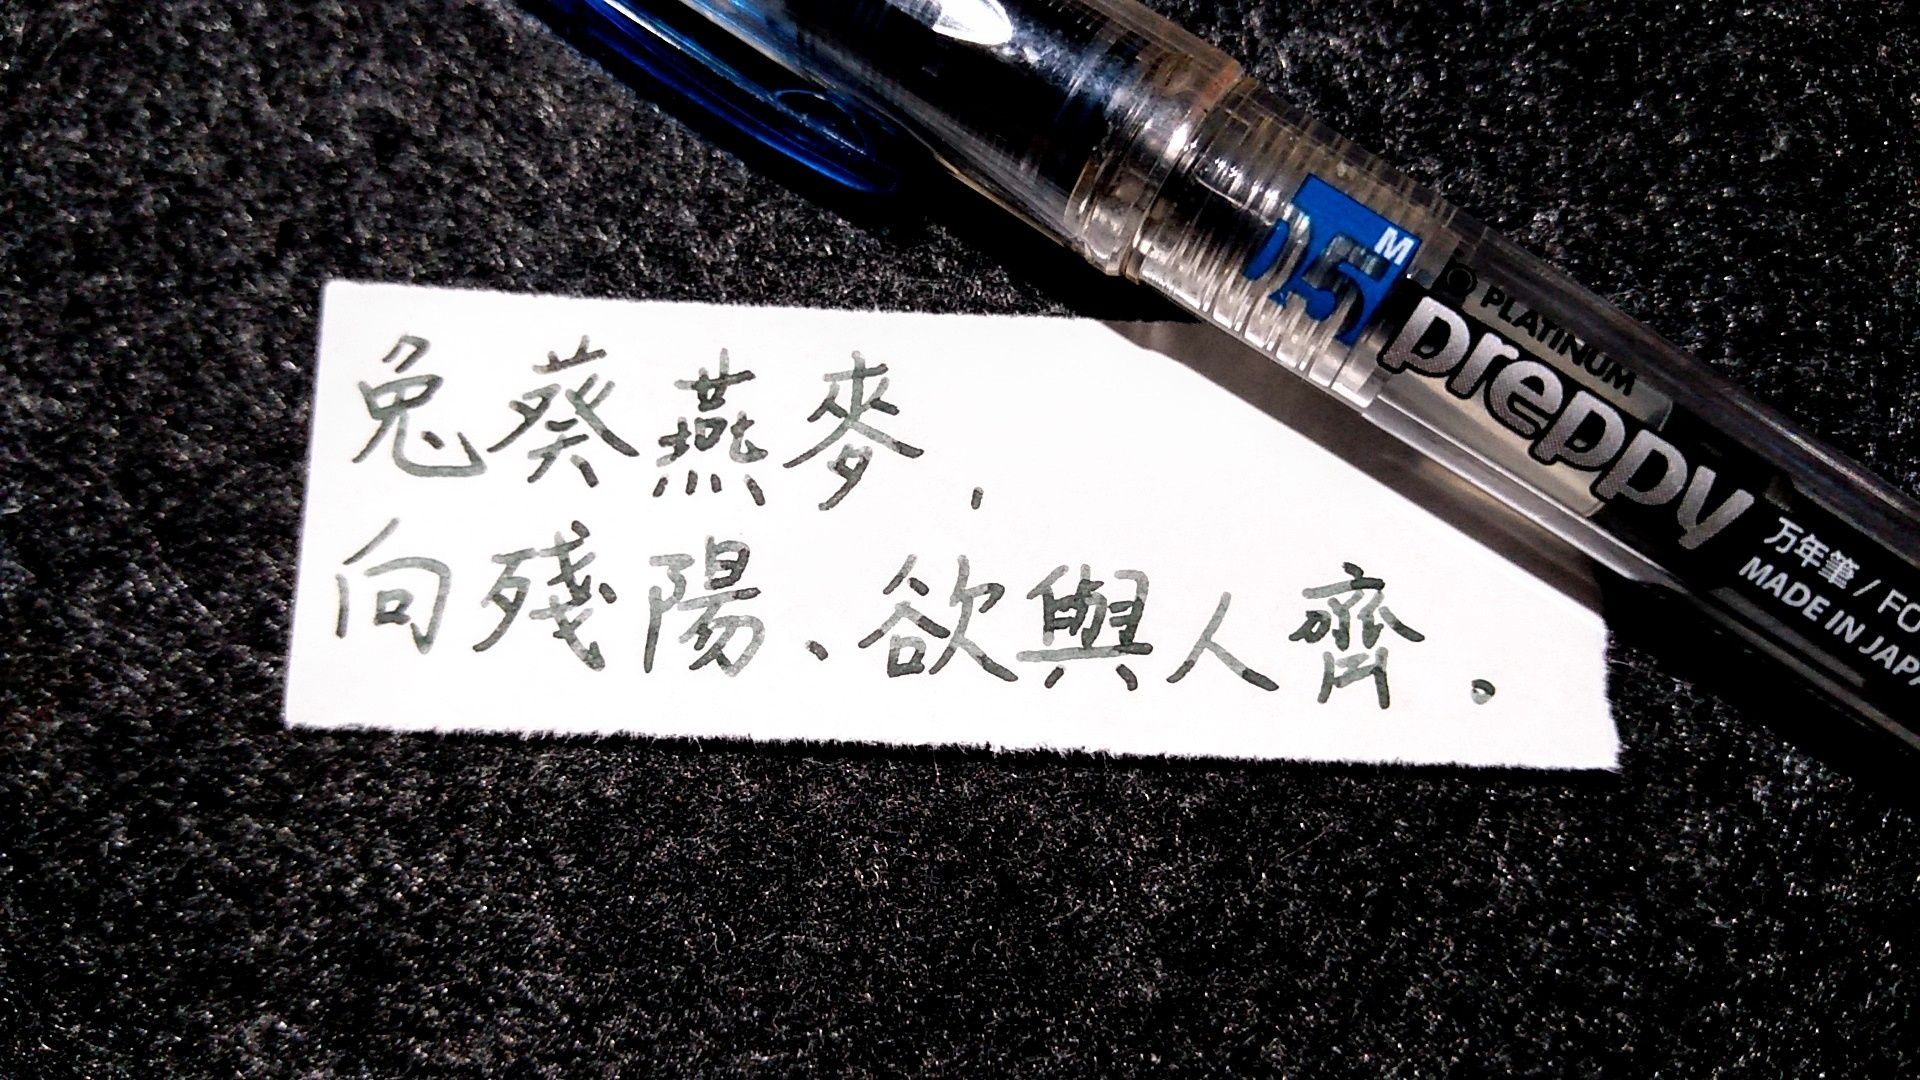 兔葵燕麥，
向殘陽、欲與人齊．
05 M
PLATINUM
preppy
万年筆 / FO
MADE IN JAPA